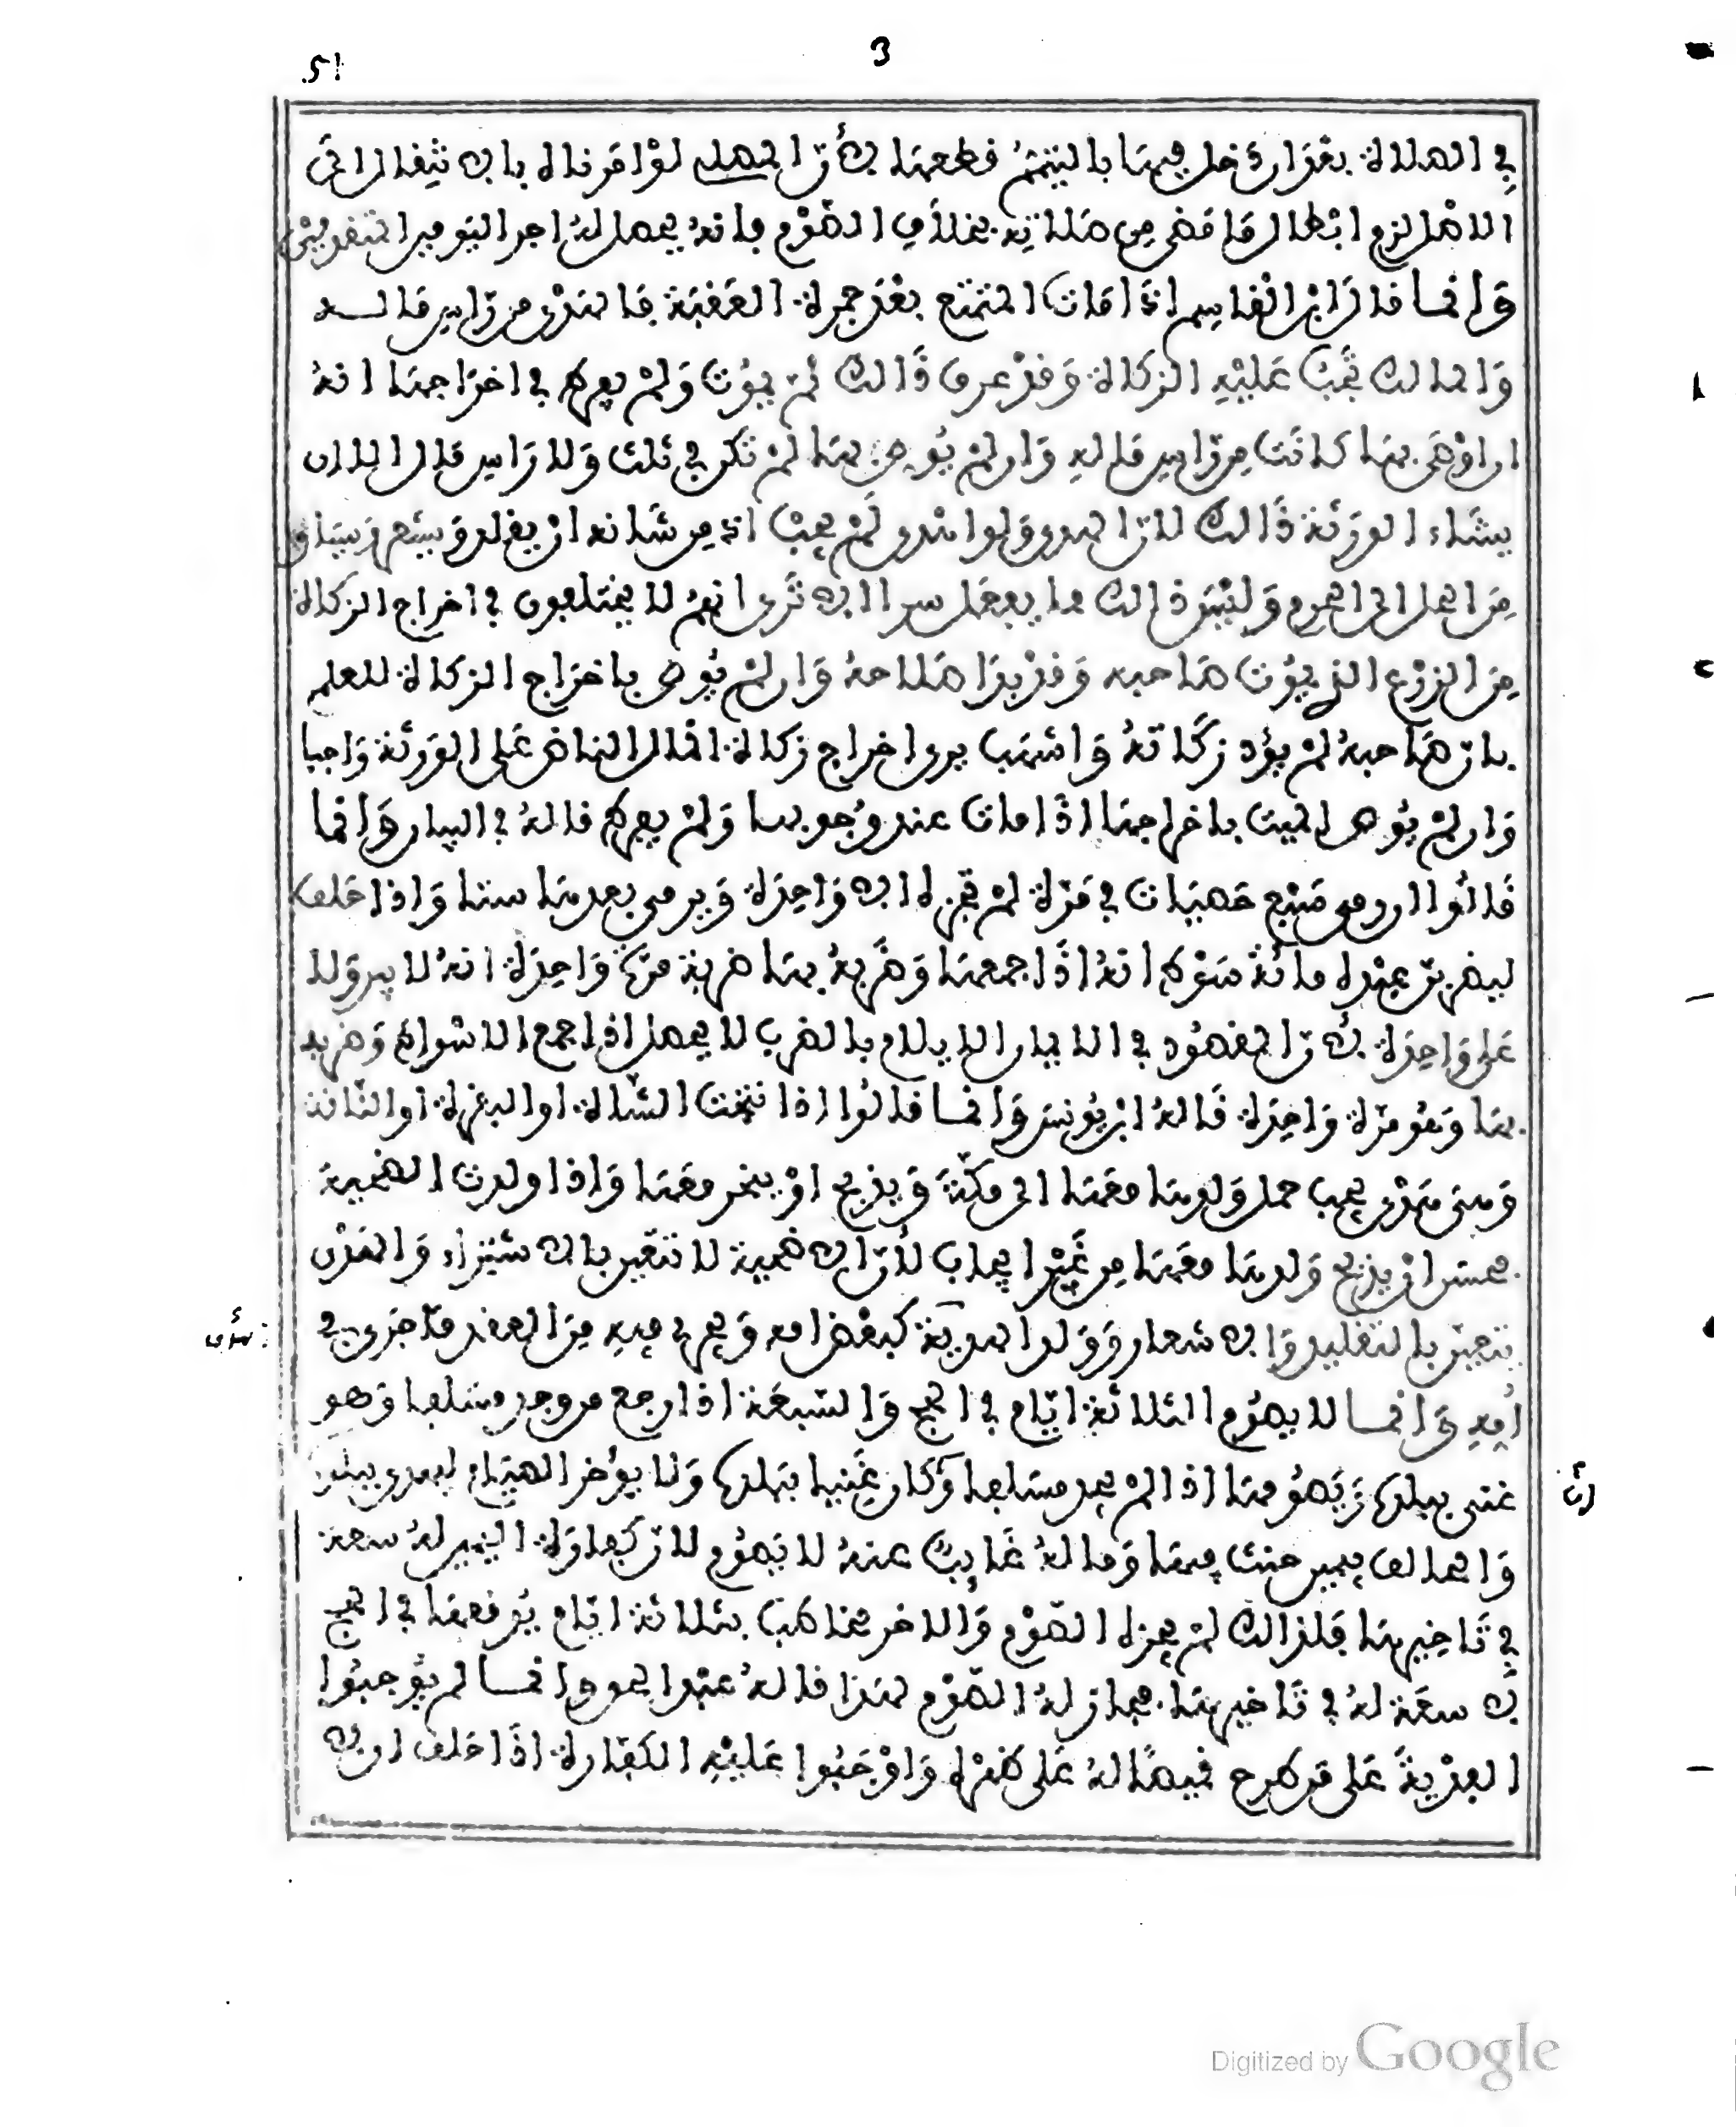 3
51
في الصلاة بعد ان دخل فيها بالتيمم قطعها لأنّ المصلي لو امرناه بالانتقال الى
الاصل لزم ابطال ما مضى من صلاته بخلاف الصوم فانه يحصل له اجر اليوم
وانما قال ابن القاسم اذا مات المتمتع بعد جمرة العقبة فالهدي من راس ماله
والمالك تجب عليه الزكاة وقد عرف ذالك ثم يموت ولم يفرط في اخراجها انه
ان اوصى بها كانت من راس ماله وان لم يوص بها لم تكن في ثلث ولا راس مال الا ان
يشاء الورثة ذالك لان الهدي ولو هدي لم يجب اذ من شانه ان يقلد ويشعر ويساق
من الحل الى الحرم وليس ذالك مما يفعل سرا الا ترى انهم لا يختلفون في اخراج الزكاة
من الزرع الذي يموت صاحبه وقد بدا صلاحه وان لم يوص باخراج الزكاة للعلم
بان صاحبه لم يؤد زكاته واشهب يرى اخراج زكاة المال الناض على الورثة واجبا
وان لم يوص الميت باخراجها اذا مات عند وجوبها ولم يفرط قاله في البيان وانما
قالوا ان رمى سبع حصيات في مرة لم تجزه الا واحدة ويرمي بعدها ستا واذا حلف
ليضربن عبده مائة سوط انه اذا جمعها وضربه بها ضربة مرة واحدة انه لا يبر ولا
على واحدة لأنّ المقصود في الايمان الايلام بالضرب لا يحصل اذا جمع الاسواط وضربه
بها وهو مرة واحدة قاله ابن يونس وانما قالوا اذا نتجت الشاة او البقرة او الناقة
وهي هدي يجب حمل ولدها معها الى مكة ويذبح او ينحر معها واذا ولدت الضحية
فحسن ان يذبح ولدها معها من غير ايجاب لأنّ الاضحية لا تتعين بالاشتراء والهدي
يتعين بالتقليد والاشعار وولد الهدية كبعض امه ويجري فيه من العقد ما جرى في
امه وانما لا يصوم الثلاثة ايام في الحج والسبعة اذا رجع من وجد مسلفا وهو
غني ببلده ويصومها اذا لم يجد مسلفا وكان غنيا ببلده ولا يؤخر الصيام ليهدي ببلده
والحالف بيمين حنث فيها وماله غائب عنه لا يصوم لان كفارة اليمين له سعة
في تاخيرها فلذالك لم يجزه الصوم والاخر مخاطب بثلاثة ايام يوقعها في الحج
لا سعة له في تاخيرها فجاز له الصوم لهذا قاله عبد الحق وانما لم يوجبوا
الفدية على من طرح قميصا له على ظهره واوجبوا عليه الكفارة اذا حلف ان لا